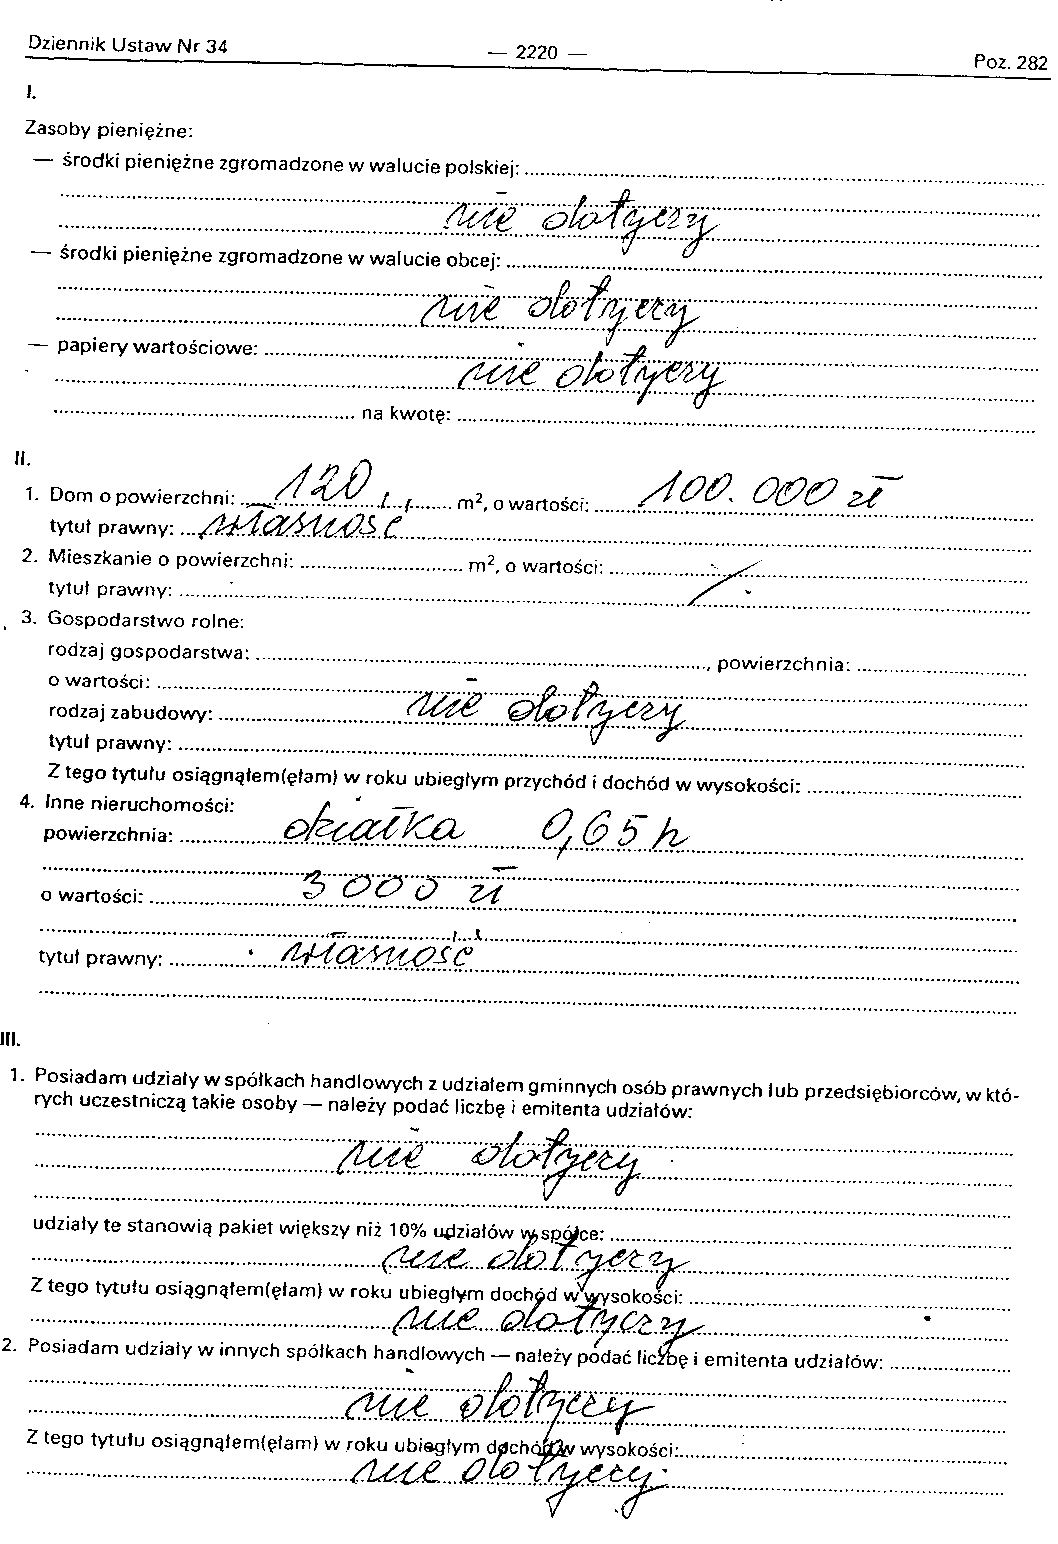 Dziennik Ustaw Nr 34 — 2220 — Poz. 282
I.
Zasoby pieniężne:
— środki pieniężne zgromadzone w walucie polskiej:
nie dotyczy
— środki pieniężne zgromadzone w walucie obcej:
nie dotyczy
— papiery wartościowe:
nie dotyczy
na kwotę:
II.
1. Dom o powierzchni: 120 m², o wartości: 100.000 zł
tytuł prawny: własność
2. Mieszkanie o powierzchni: m², o wartości:
tytuł prawny:
3. Gospodarstwo rolne:
rodzaj gospodarstwa: , powierzchnia:
o wartości:
rodzaj zabudowy: nie dotyczy
tytuł prawny:
Z tego tytułu osiągnąłem(ęłam) w roku ubiegłym przychód i dochód w wysokości:
4. Inne nieruchomości:
powierzchnia: działka 0,65 h
o wartości: 3000 zł
tytuł prawny: własność
III.
1. Posiadam udziały w spółkach handlowych z udziałem gminnych osób prawnych lub przedsiębiorców, w któ-
rych uczestniczą takie osoby — należy podać liczbę i emitenta udziałów:
nie dotyczy
udziały te stanowią pakiet większy niż 10% udziałów w spółce:
nie dotyczy
Z tego tytułu osiągnąłem(ęłam) w roku ubiegłym dochód w wysokości:
nie dotyczy
2. Posiadam udziały w innych spółkach handlowych — należy podać liczbę i emitenta udziałów:
nie dotyczy
Z tego tytułu osiągnąłem(ęłam) w roku ubiegłym dochód w wysokości:
nie dotyczy